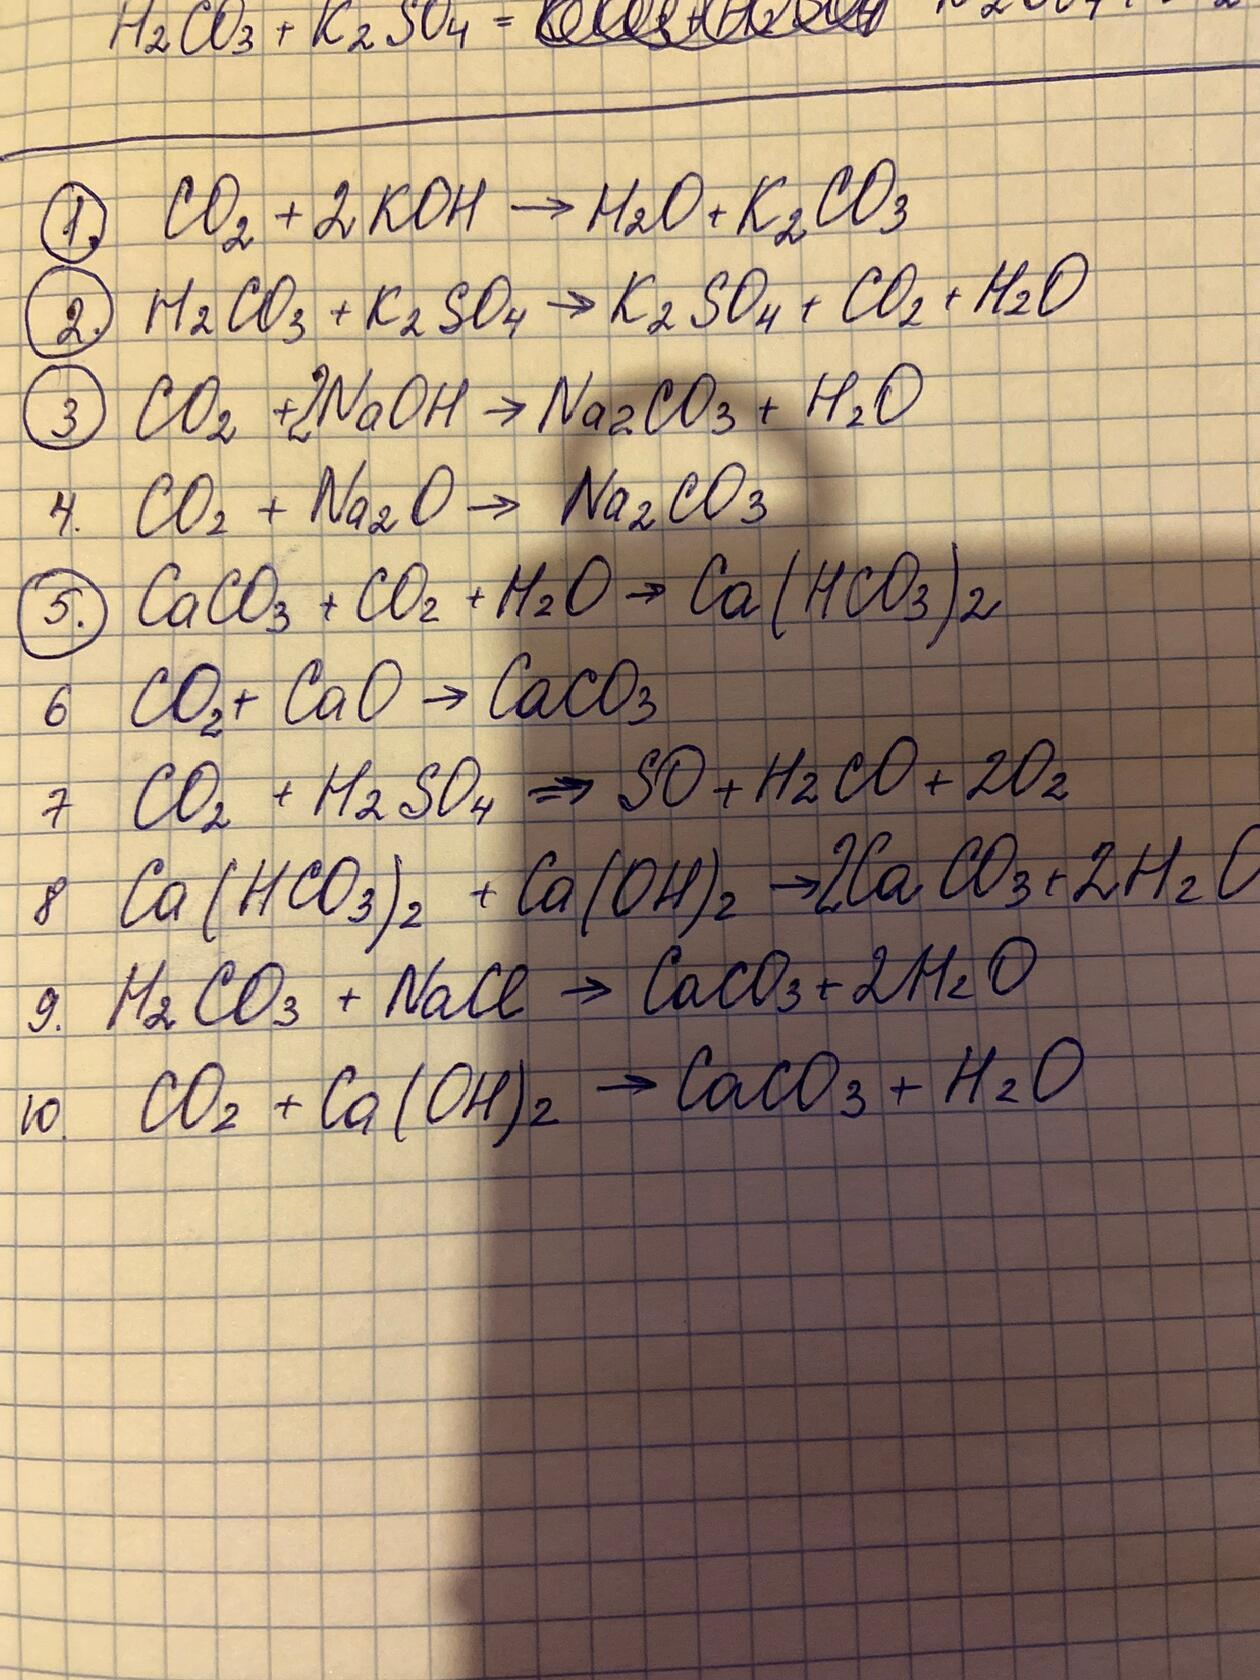 H₂CO₃ + K₂SO₄ =
1. CO₂ + 2KOH → H₂O + K₂CO₃
2. H₂CO₃ + K₂SO₄ → K₂SO₄ + CO₂ + H₂O
3 CO₂ + 2NaOH → Na₂CO₃ + H₂O
4. CO₂ + Na₂O → Na₂CO₃
5. CaCO₃ + CO₂ + H₂O → Ca(HCO₃)₂
6 CO₂ + CaO → CaCO₃
7 CO₂ + H₂SO₄ → SO + H₂CO + 2O₂
8 Ca(HCO₃)₂ + Ca(OH)₂ → 2CaCO₃ + 2H₂O
9. H₂CO₃ + NaCl → CaCO₃ + 2H₂O
10. CO₂ + Ca(OH)₂ → CaCO₃ + H₂O